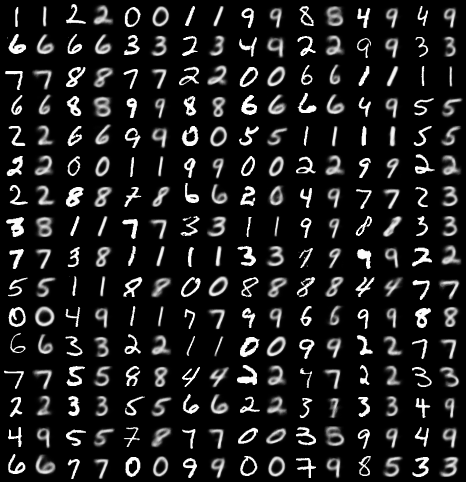 1 1 2 2 0 0 1 1 9 9 8 8 4 9 4 9
6 6 6 6 3 3 2 3 4 9 2 2 9 9 3 3
7 7 8 8 7 7 2 2 0 0 6 6 1 1 1 1
6 6 8 8 9 9 8 8 6 6 6 6 4 9 5 5
2 2 6 6 9 9 0 0 5 5 1 1 1 1 5 5
2 2 0 0 1 1 9 9 0 0 2 2 9 9 2 2
2 2 8 8 7 8 6 6 2 0 4 9 7 7 2 3
3 8 1 1 7 7 3 3 1 1 9 9 8 8 3 3
7 7 3 8 1 1 1 1 3 3 7 9 9 9 2 2
5 5 1 1 8 8 0 0 8 8 8 8 4 4 7 7
0 0 4 9 1 1 7 7 9 9 6 6 9 9 8 8
6 6 3 3 2 2 1 1 0 0 9 9 2 2 7 7
7 7 5 5 8 8 4 4 2 2 4 7 2 2 3 3
2 2 3 3 5 5 6 6 2 2 3 7 3 3 4 9
4 9 5 5 7 8 7 7 0 0 3 8 9 9 4 9
6 6 7 7 0 0 9 9 0 0 7 9 8 5 3 3